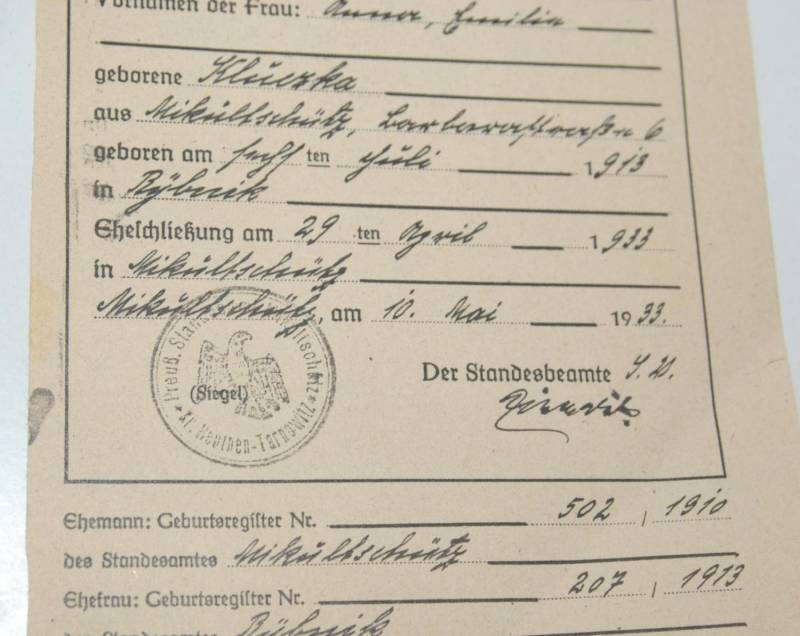 Vornamen der Frau: Anna, Emilie
geborene Kluczka
aus Mikultschütz, Barbarastraße 6
geboren am sechsten Juli 1913
in Rybnik
Eheschließung am 29ten April 1933
in Mikultschütz
Mikultschütz, am 10. Mai 1933.
Preuß. Standesamt Mikultschütz
(Siegel)
* Kr. Beuthen-Tarnowitz *
Der Standesbeamte
Ehemann: Geburtsregister Nr. 502, 1910
des Standesamtes Mikultschütz
Ehefrau: Geburtsregister Nr. 207, 1913
des Standesamtes Rybnik